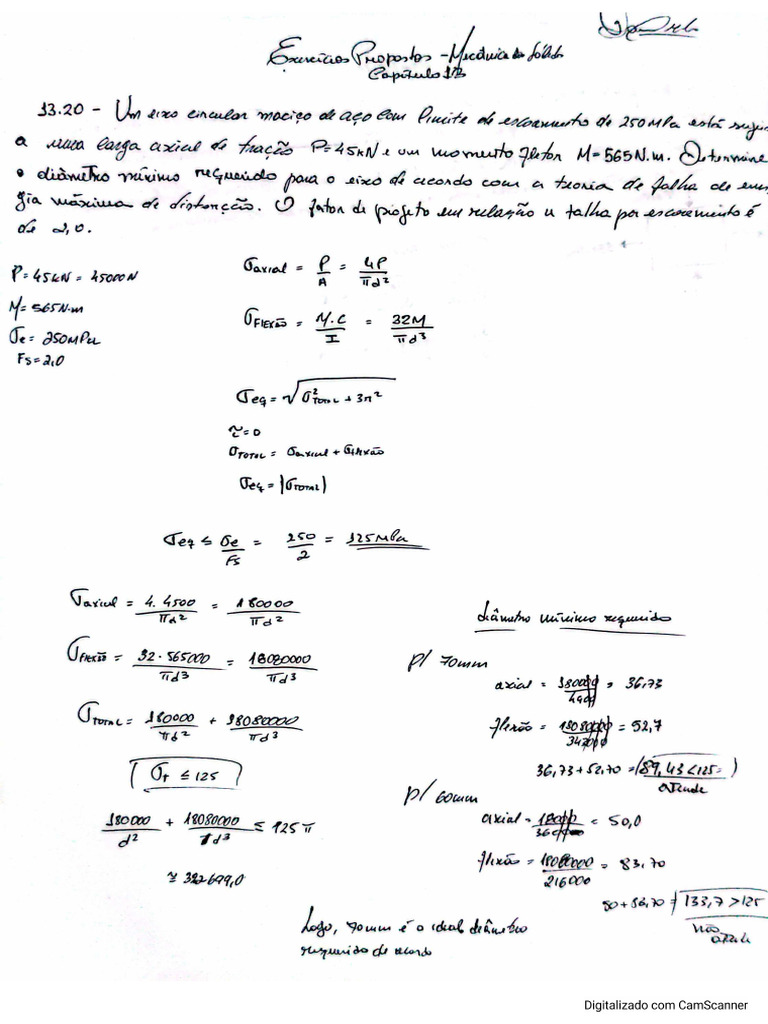 Exercícios Propostos - Mecânica dos Sólidos
Capítulo 13
13.20 - Um eixo circular maciço de aço com limite de escoamento de 250MPa está
a uma carga axial de tração P=45kN e um momento fletor M=565N.m. Determine
o diâmetro mínimo requerido para o eixo de acordo com a teoria de falha de ener
gia máxima de distorção. O fator de projeto em relação a falha por escoamento é
de 2,0.
P=45kN = 45000N
M=565N.m
σe= 250MPa
Fs=2,0
σaxial = P/A = 4P/πd²
σFLEXÃO = M.C/I = 32M/πd³
σeq = √σ²TOTAL + 3π²
τ=0
σTOTAL = σaxial + σflexão
σeq = |σTOTAL|
σeq ≤ σe/Fs = 250/2 = 125MPa
σaxial = 4.4500/πd² = 180000/πd²
σFLEXÃO = 32.565000/πd³ = 18080000/πd³
σTOTAL = 180000/πd² + 18080000/πd³
σT ≤ 125
180000/d² + 18080000/d³ ≤ 125π
≅ 392699,0
diâmetro mínimo requerido
p/ 70mm
axial = 180000/4900 = 36,73
flexão = 18080000/343000 = 52,7
36,73+52,70 = (89,43<125=)
atende
p/ 60mm
axial = 18000/3600 = 50,0
flexão = 18080000/216000 = 83,70
50+83,70 = 133,7>125
não
atende
Logo, 70mm é o ideal diâmetro
requerido de acordo
Digitalizado com CamScanner